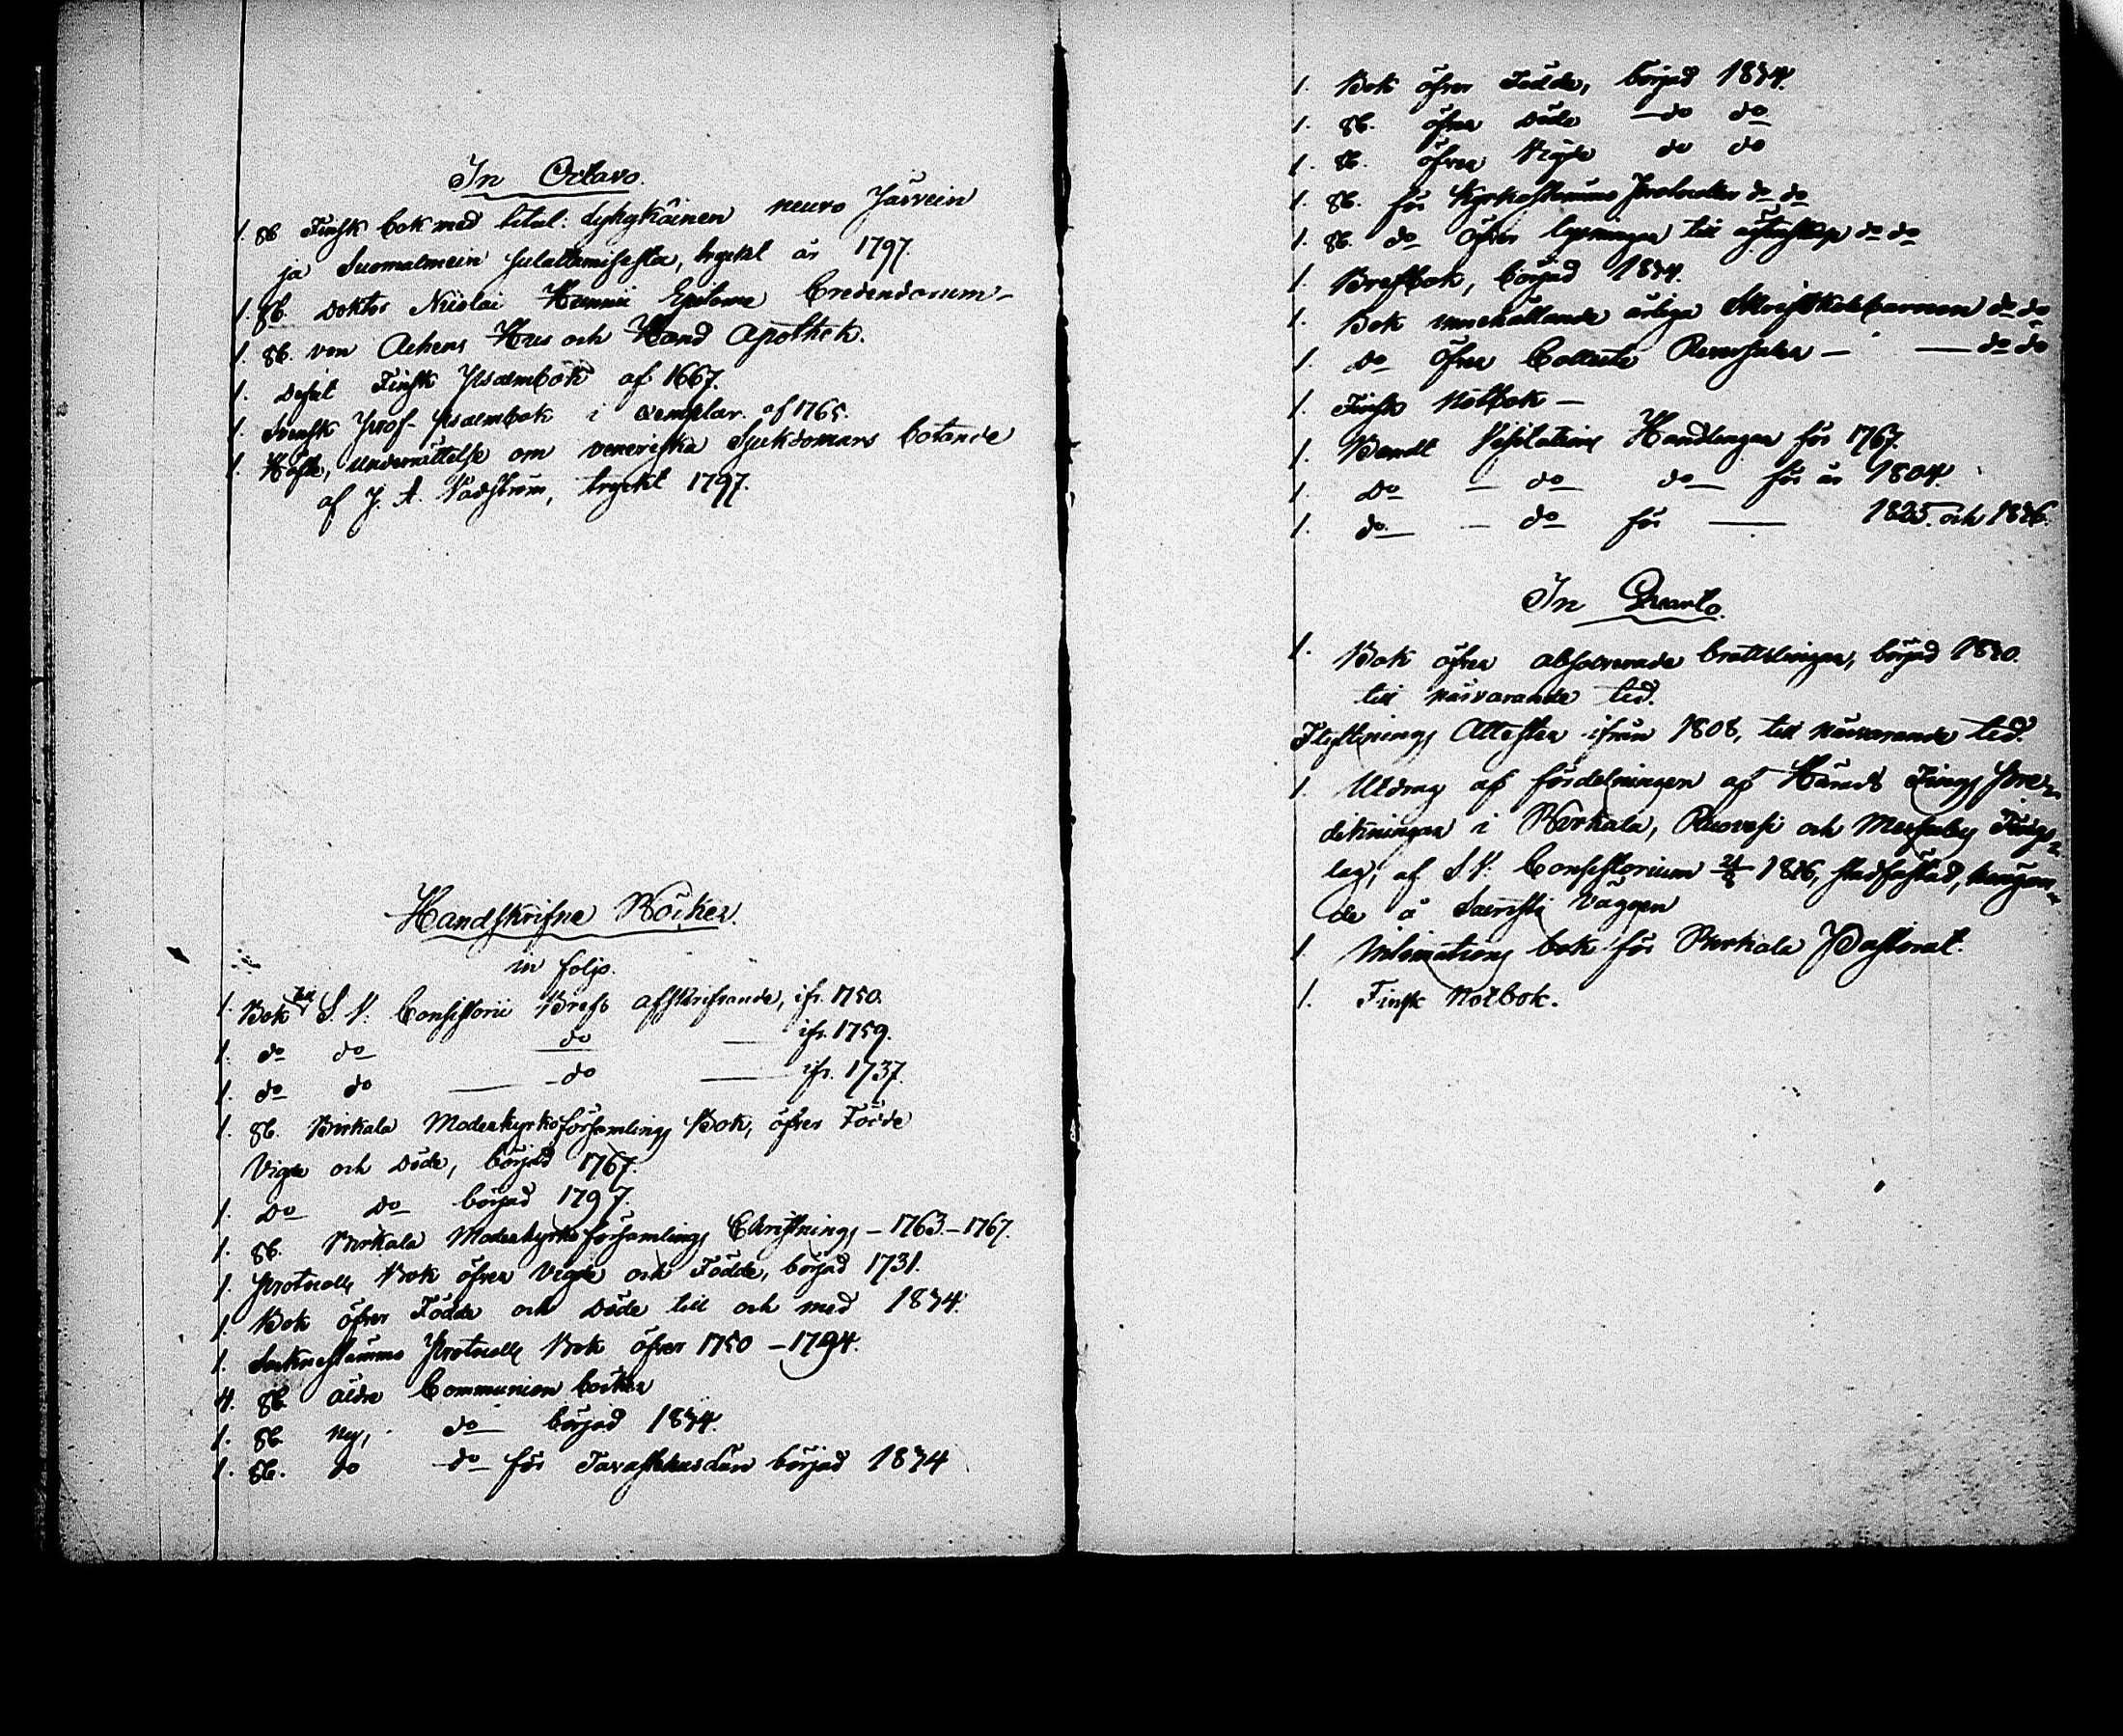 In Octavo.
1. st Finsk bok med titul: Lyhykäinen neuvo Järvein
ja Suomalmein sulattamisesta, tryckt år 1797.
1. st. Doktor Nicolai Hunnii Epitome Credendorum
1. st. von Achens Hus och Hand Apothek.
1. Defect Finsk Psalmbok af 1667.
1. Svensk Prof-Psalmbok i exemplar. af 1765.
1. Häfte, Underrättelse om veneriska Sjukdomars botande
af J. A. tryckt 1797.
Handskrifne Böcker.
in folio.
1. Bok till S. V. Consistorii Brefs afskrifvande, ifr. 1750.
1. do do do — ifr. 1759.
1. do do — do — ifr. 1737.
1. st. Birkala Moderkyrkoförsamlings Bok, öfver Födde
Vigde och Döde, börjad 1767.
1. Do Do börjad 1797.
1. st. Birkala Moderkyrko församlings Christnings – 1763–1767.
1. Protocolls Bok öfver Vigde och Födde, börjad 1731.
1. Bok öfver Födde och Döde till och med 1834.
1. Socknestämmo Protocolls Bok öfver 1750 – 1794.
4. st. äldre Communion böcker
1. st. ny, do börjad 1834.
1. st. do do för Tavastehus Län börjad 1834
1. Bok öfver Födde, börjad 1834.
1. st. öfver Döde — do do
1. st. öfver Vigde do do
1. st. för Kyrkostämmo Protocoller do do
1. st. do öfver lysningar till äktenskap do do
1. Brefbok, börjad 1834.
1. Bok innehållande årliga Skriftskolebarnen do do
1. do öfver Collecte Reversaler — — do do
1. Finsk Notbok —
1. Bandt Visitations Handlingar för 1767.
1. Do — do do för år 1804.
1. do — do för — 1825. och 1826.
In Quarto.
1. Bok öfver absolverade brottslingar, börjad 1820.
till närvarande tid.
Flyttnings Attester ifrån 1808, till närvarande tid.
1. Utdrag af fördelningen af Härads Tings Pre-
dikningar i Birkala, Ruovesi och Messuby Tings-
lag, af S. V. Consistorium 1826, stadfästad, hängan-
de å Sacristi Väggen
1. Intimations bok för Birkala Pastorat.
1. Finsk Notbok.